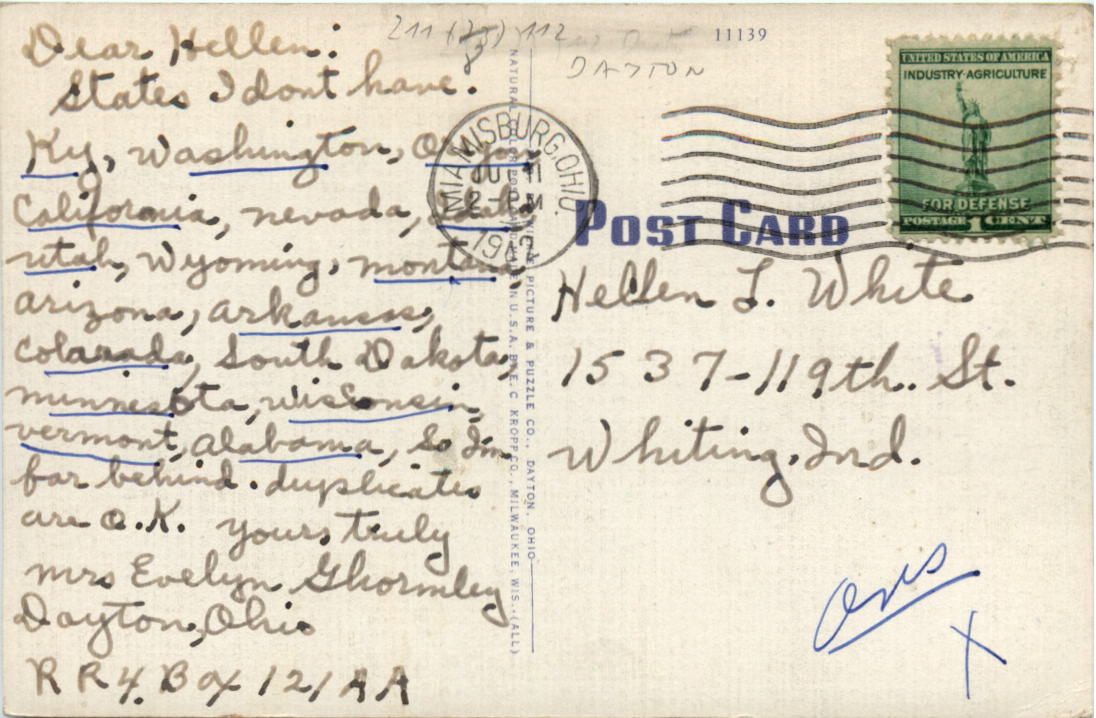 Dear Hellen:
States I dont have.
Ky, Washington, Oregon,
California, nevada, Idaho
utah, Wyoming, montana
arizona, arkansas,
Colorado, South Dakota,
minnesota, wisconsin,
vermont, alabama, So Im
far behind. duplicates
are O.K. yours truly
mrs Evelyn Ghormley
Dayton, Ohio
R R 4. Box 121 A A
211 112
DAYTON
11139
MIAMISBURG, OHIO
2 PM
NATURAL COLOR POST CARD MADE IN U.S.A. BY E. C. KROPP CO., MILWAUKEE, WIS. (ALL)
PICTURE & PUZZLE CO., DAYTON, OHIO
UNITED STATES OF AMERICA
INDUSTRY·AGRICULTURE
FOR DEFENSE
POSTAGE 1 CENT
POST CARD
Hellen L. White
1537-119th. St.
Whiting, Ind.
X